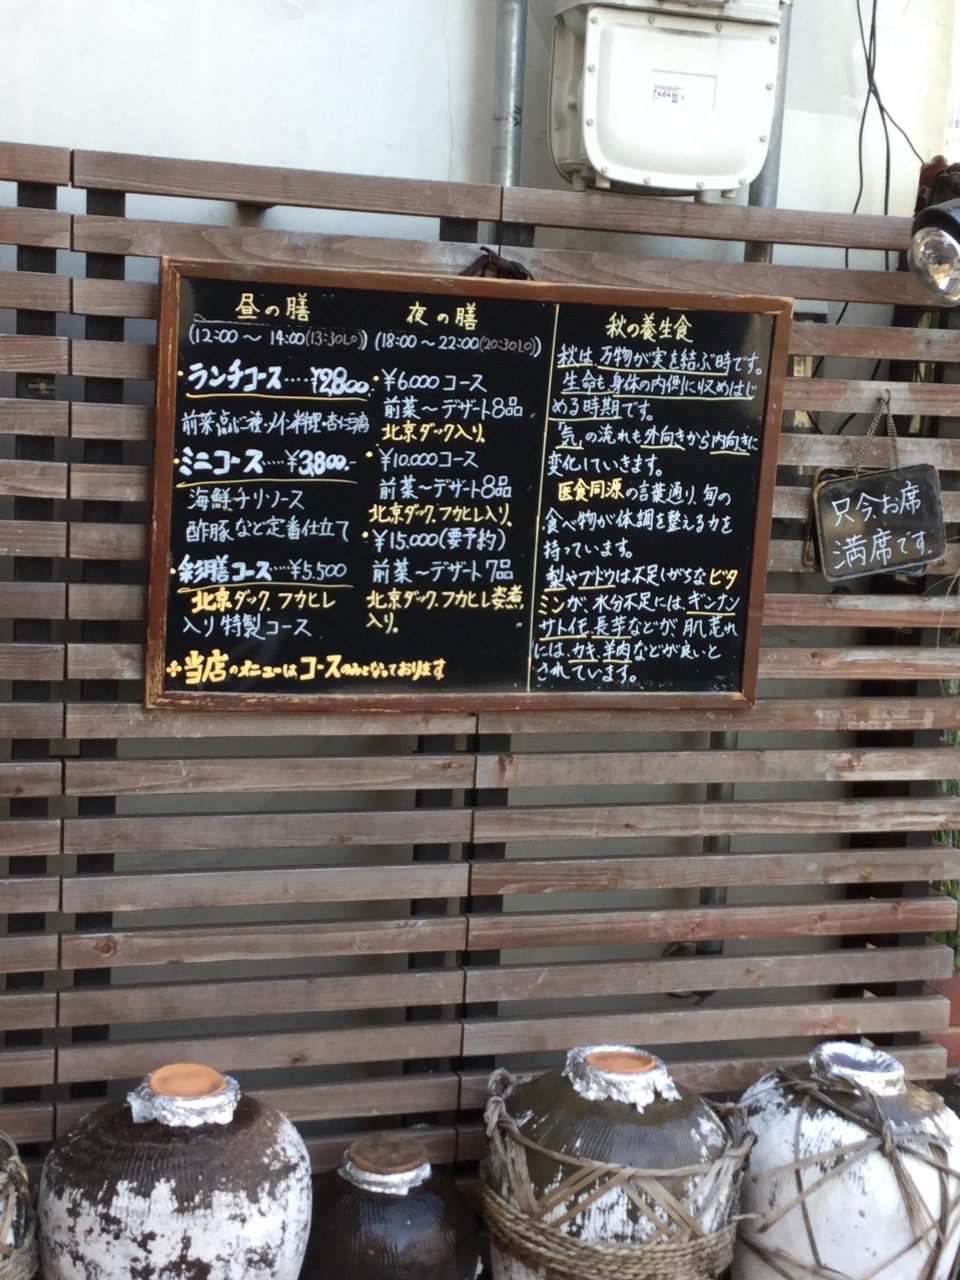 7464
昼の膳
(12:00 〜 14:00(13:30LO))
・ランチコース‥‥¥2,800.
前菜点心三種・メイン料理・杏仁豆腐
・ミニコース‥‥¥3,800.-
海鮮チリソース
酢豚など定番仕立て
・彩膳コース‥‥¥5,500
北京ダック、フカヒレ
入り特製コース
夜の膳
(18:00 〜 22:00(20:30LO))
・¥6,000コース
前菜〜デザート8品
北京ダック入り。
・¥10,000コース
前菜〜デザート8品
北京ダック、フカヒレ入り。
・¥15,000(要予約)
前菜〜デザート7品
北京ダック、フカヒレ姿煮
入り。
当店のメニューはコースのみとなっております
秋の養生食
秋は万物が実を結ぶ時です。
生命も身体の内側に収めはじ
める時期です。
「気」の流れも外向きから内向きに
変化していきます。
医食同源の言葉通り、旬の
食べ物が体調を整える力を
持っています。
梨やブドウは不足しがちなビタ
ミンが、水分不足には、ギンナン
サトイモ、長芋などが、肌荒れ
には、カキ、羊肉などが良いと
されています。
只今お席
満席です。